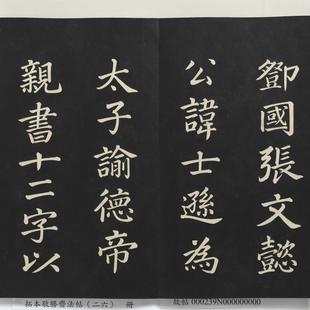 鄧國張文懿
公諱士遜為
太子諭德帝
親書十二字以
拓本敬勝齋法帖（二六） 冊
故帖 000239N000000000